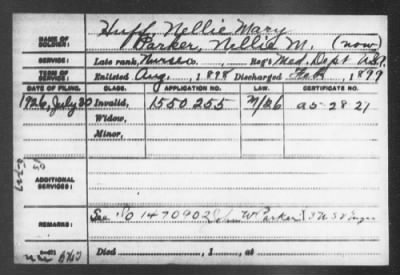 Huff, Nellie Mary
NAME OF SOLDIER: Parker, Nellie M. (now)
SERVICE: Late rank, Nurse Co. , Reg't Med. Dept U.S.A.
TERM OF SERVICE: Enlisted Aug., 1898 Discharged Feb, 1899
DATE OF FILING. CLASS. APPLICATION NO. LAW. CERTIFICATE NO.
1926, July 20 Invalid, 1550 255 a5-28 21
Widow,
Minor,
ADDITIONAL SERVICES:
REMARKS: See 1470902 John W Parker
Died , 1 , at